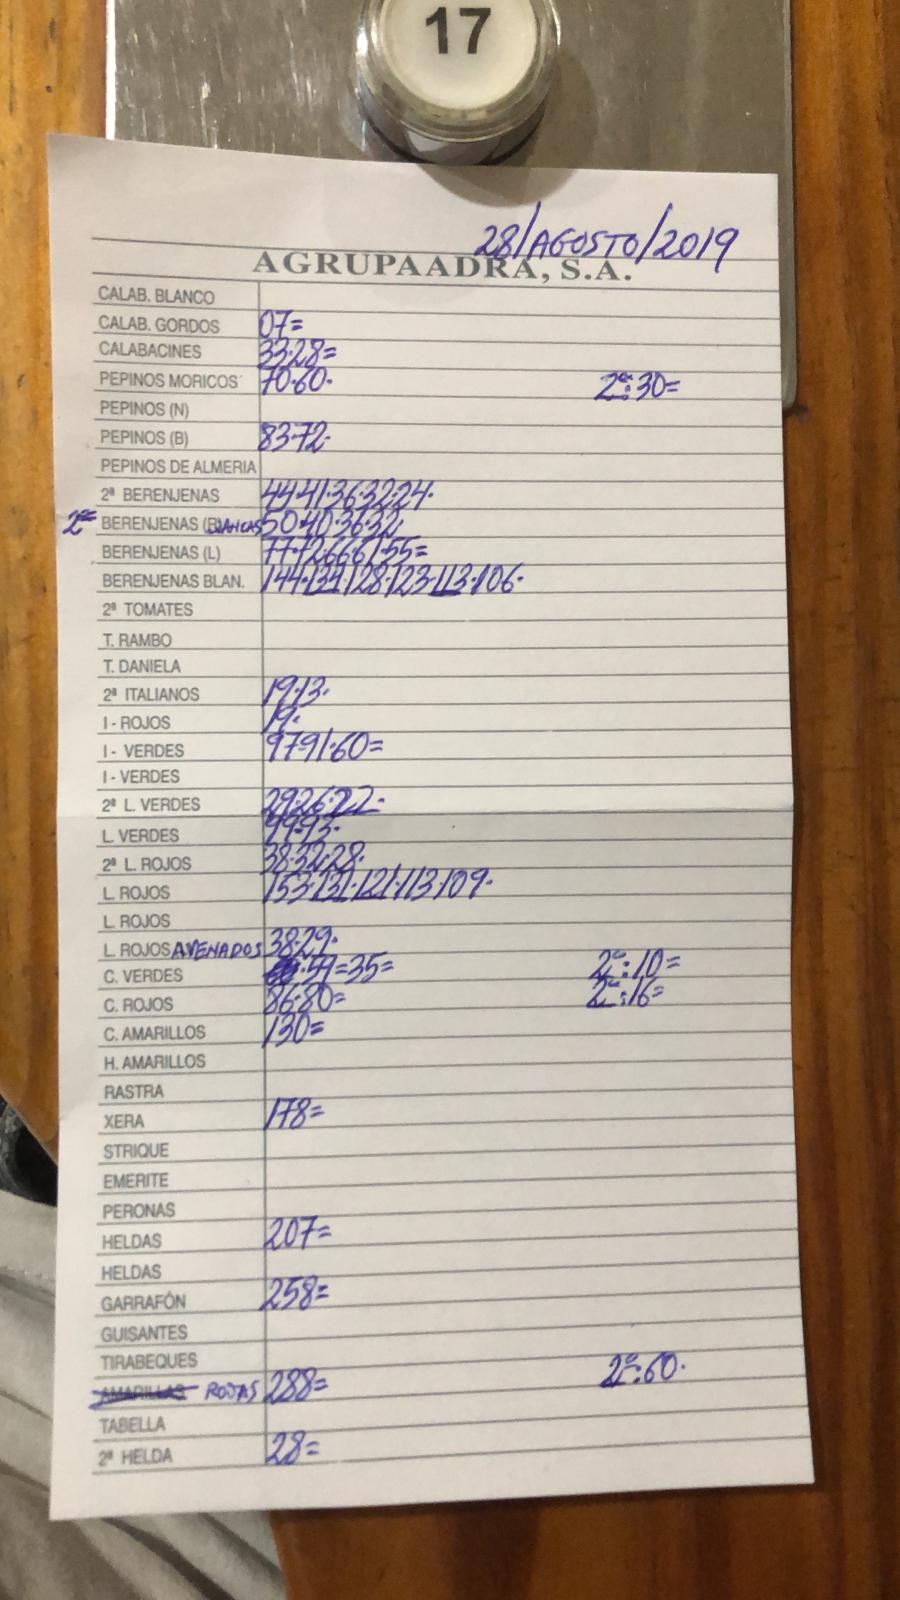 17
28/AGOSTO/2019
AGRUPAADRA, S.A.
CALAB. BLANCO
CALAB. GORDOS 07=
CALABACINES 33·28=
PEPINOS MORICOS 70·60· 2ª:30=
PEPINOS (N)
PEPINOS (B) 83·72·
PEPINOS DE ALMERIA
2ª BERENJENAS 44·41·36·32·24·
2ª BERENJENAS (BLANCAS 50·40·36·32
BERENJENAS (L) 77·72·66·61·55=
BERENJENAS BLAN. 144·134·128·123·113·106·
2ª TOMATES
T. RAMBO
T. DANIELA
2ª ITALIANOS 19·13·
I - ROJOS 19·
I - VERDES 97·91·60=
I - VERDES
2ª L. VERDES 29·26·22·
L. VERDES 99·93·
2ª L. ROJOS 38·32·28·
L. ROJOS 153·131·121·113·109·
L. ROJOS
L. ROJOS AVENADOS 38·29·
C. VERDES ·59=35= 2ª:10=
C. ROJOS 86·80= 2ª:16=
C. AMARILLOS 130=
H. AMARILLOS
RASTRA
XERA 178=
STRIQUE
EMERITE
PERONAS
HELDAS 207=
HELDAS
GARRAFÓN 258=
GUISANTES
TIRABEQUES
AMARILLAS ROJAS 288= 2ª:60·
TABELLA
2ª HELDA 28=